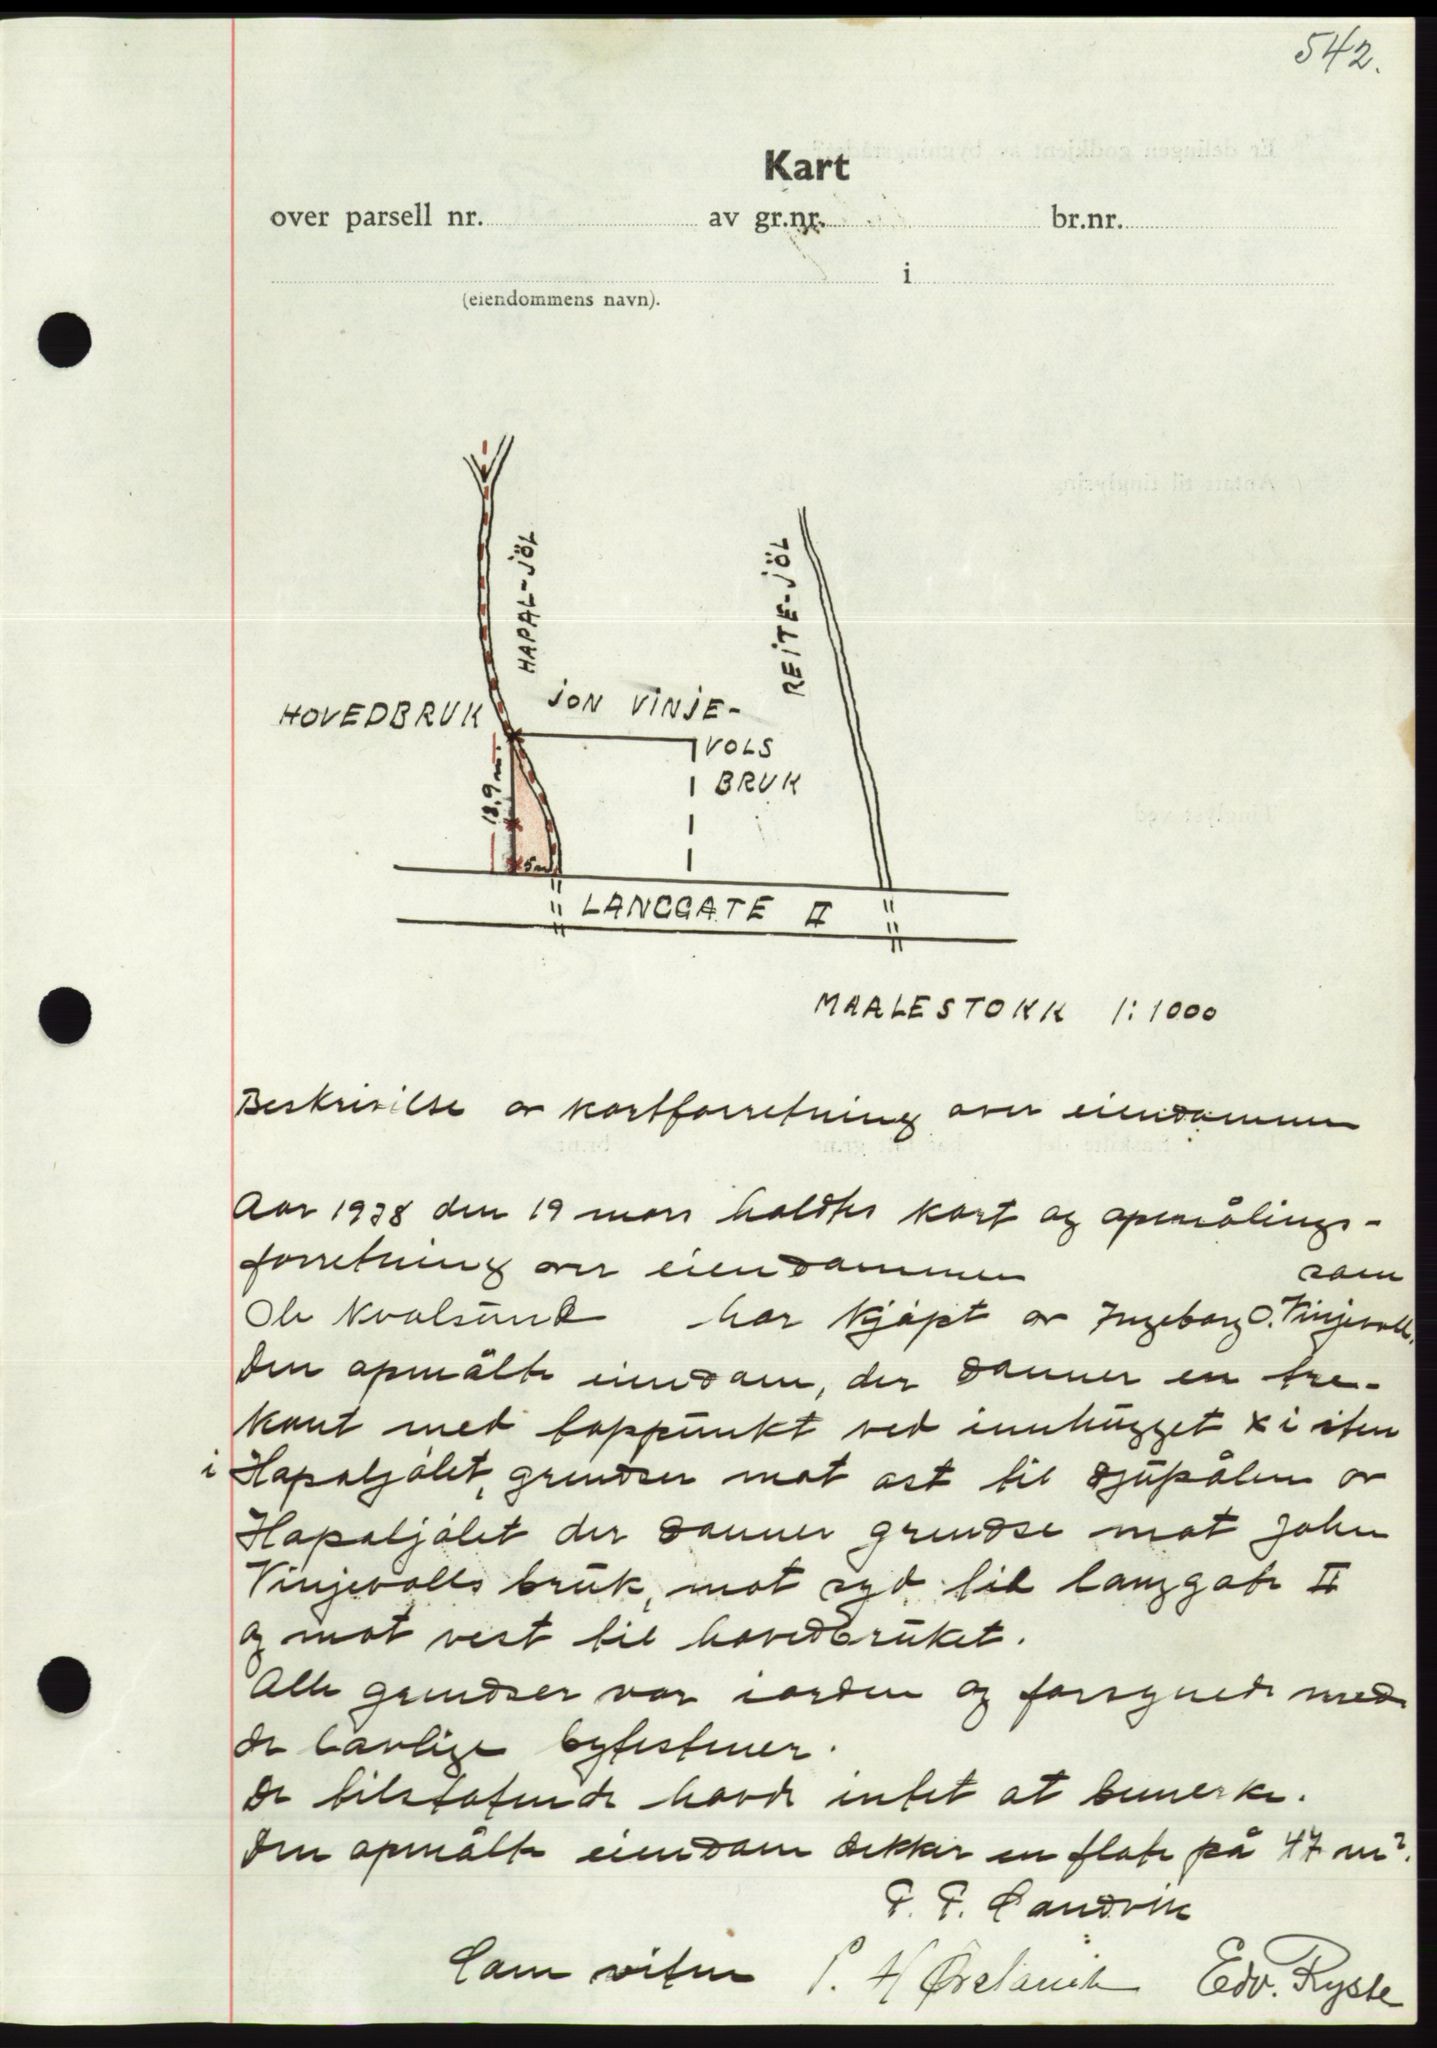 542.
Kart
over parsell nr. av gr.nr. br.nr.
i
(eiendommens navn).
HAPAL-JÖL
REITE-JÖL
HOVEDBRUK
JON VINJE-
VOLS
BRUK
18,9 m.
5 m
LANGGATE II
MAALESTOKK 1:1000
Beskrivilse av kartforretning over eiendommen
Aar 1938 den 19 mars holdtes kart og opmålings-
forretning over eiendommen som
Ole Kvalsund har kjøpt av Ingeborg O. Vinjevoll.
Den opmålte eiendom, der danner en tre-
kant med toppunkt ved innhugget x i sten
i Hapaljølet, grendser mot øst til djupålen av
Hapaljølet der danner grendse mot John
Vinjevolls bruk, mot syd til langgate II
og mot vest til hovedbruket.
Alle grendser var iorden og forsynede med
de lovlige bytestener.
De tilstøtende havde intet at bemerke.
Den opmålte eiendom dekker en flate på 47 m².
P. P. Landvik
Som vitne P. H. Edv. Ryste